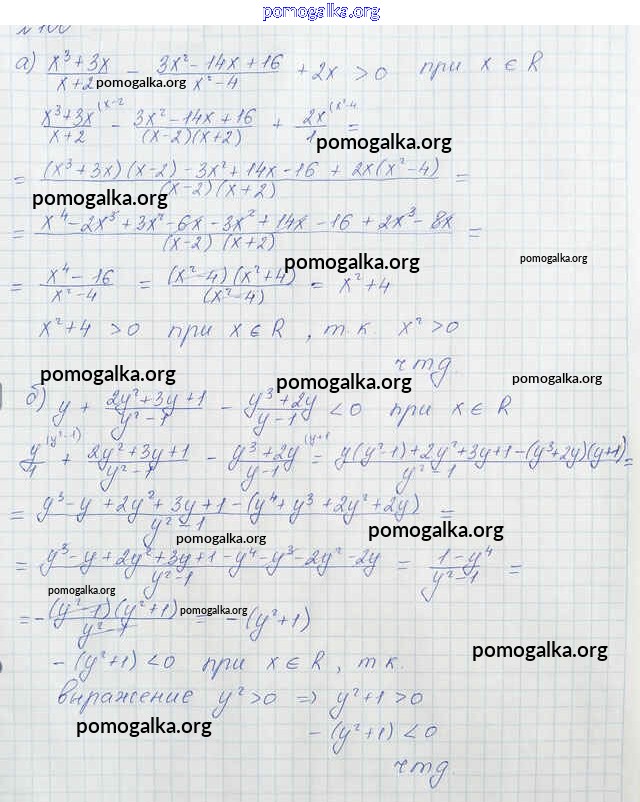 pomogalka.org
№100
а) (x³+3x)/(x+2) - (3x²-14x+16)/(x²-4) + 2x > 0 при x ∈ R
pomogalka.org
(x³+3x)/(x+2) (x-2 - (3x²-14x+16)/((x-2)(x+2)) + 2x/1 (x²-4 =
pomogalka.org
= ((x³+3x)(x-2) - 3x²+14x-16 + 2x(x²-4))/((x-2)(x+2)) =
pomogalka.org
= (x⁴-2x³+3x²-6x-3x²+14x-16+2x³-8x)/((x-2)(x+2)) =
pomogalka.org pomogalka.org
= (x⁴-16)/(x²-4) = ((x²-4)(x²+4))/(x²-4) = x²+4
x²+4 > 0 при x ∈ R, т.к. x²>0
чтд.
pomogalka.org pomogalka.org pomogalka.org
б) y + (2y²+3y+1)/(y²-1) - (y³+2y)/(y-1) < 0 при x ∈ R
y/1 (y²-1) + (2y²+3y+1)/(y²-1) - (y³+2y)/(y-1) (y+1 = (y(y²-1)+2y²+3y+1-(y³+2y)(y+1))/(y²-1) =
= (y³-y+2y²+3y+1-(y⁴+y³+2y²+2y))/(y²-1) =
pomogalka.org pomogalka.org
= (y³-y+2y²+3y+1-y⁴-y³-2y²-2y)/(y²-1) = (1-y⁴)/(y²-1) =
pomogalka.org
= -((y²-1)(y²+1))/(y²-1) = -(y²+1)
pomogalka.org
pomogalka.org
-(y²+1) < 0 при x ∈ R, т.к.
выражение y²>0 ⇒ y²+1>0
pomogalka.org
-(y²+1) < 0
чтд.